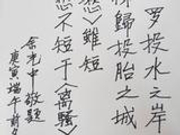 罗投水之岸
秭歸投胎之城
悠》雖短
悲不短于《離騷》
余光中敬題
庚寅端午前夕